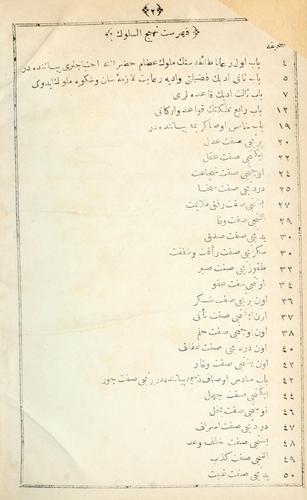 ﴿٢﴾
﴿ فهرست نهج السلوك ﴾
صحيفه
٤ باب اول رعايا طائفه سنك ملوك عظام حضراتنه احتياجلرى بياننده در
٥ باب ثانى ادبك فضيلتى وادبه رعايت لازمهٔ شان وشكوه ملوك ايدوكى
٧ باب ثالث ادبك قاعده لرى
١٢ باب رابع مملكتك قواعد واركانى
١٩ باب خامس اوصاف كريمه بياننده در
٢٠ برنجى صفت عدل
٢٢ ايكنجى صفت عقل
٢٤ اوچنجى صفت شجاعت
٢٥ دردنجى صفت سخا
٢٧ بشنجى صفت رفق وملايمت
٢٩ التنجى صفت وفا
٣٠ يدنجى صفت صدق
٣٠ سكزنجى صفت رأفت وشفقت
٣٢ طقوزنجى صفت صبر
٣٤ اوننجى صفت عفو
٣٦ اون برنجى صفت شكر
٣٧ اون ايكنجى صفت تأنى
٣٨ اون اوچنجى صفت حلم
٤٠ اون دردنجى صفت عفاف
٤٢ اون بشنجى صفت وقار
٤٢ باب سادس اوصاف ذميمه بياننده در برنجى صفت جور
٤٤ ايكنجى صفت جهل
٤٦ اوچنجى صفت بخل
٤٧ دردنجى صفت اسراف
٤٨ بشنجى صفت خلف وعد
٤٩ التنجى صفت كذب
٥٠ يدنجى صفت غيبت